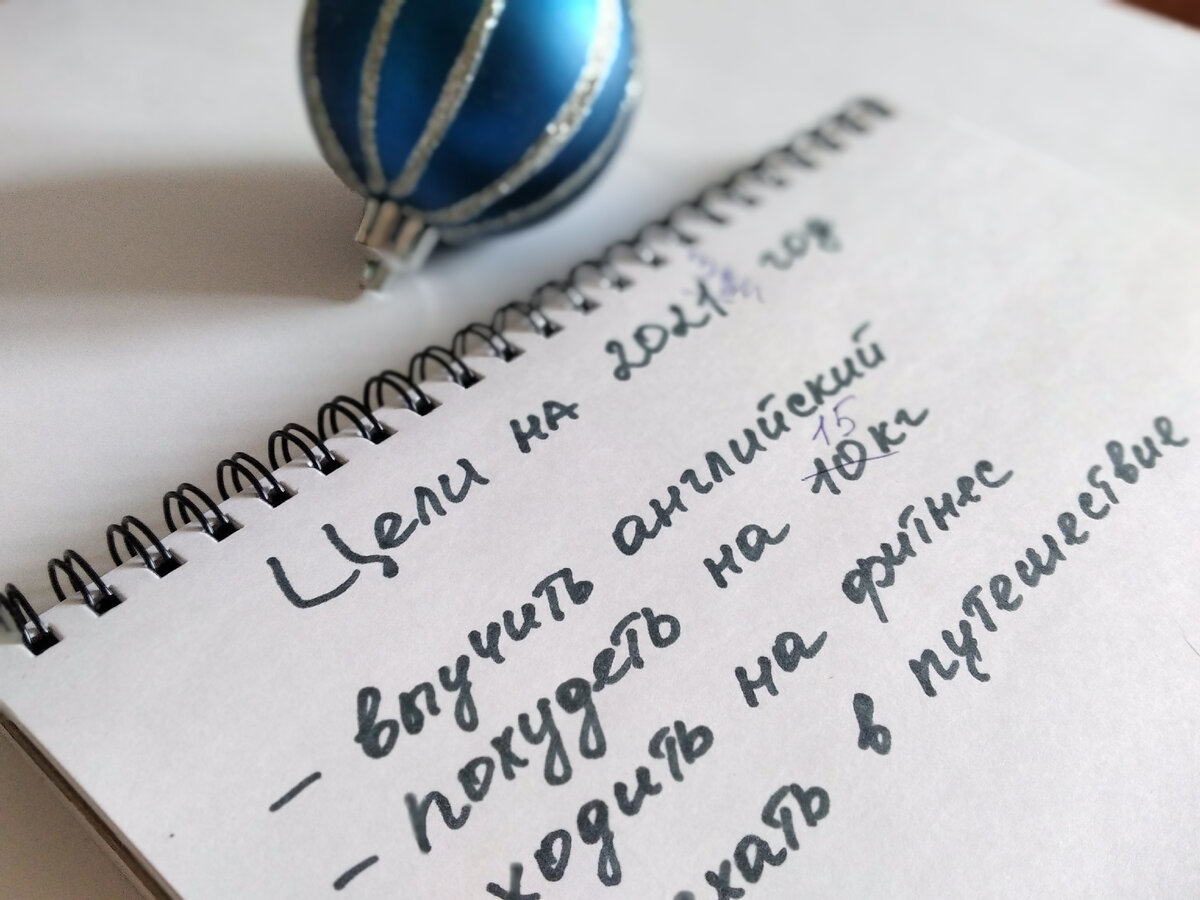 Цели на 2021 год
- выучить английский
- похудеть на 10 15 кг
ходить на фитнес
ехать в путешествие